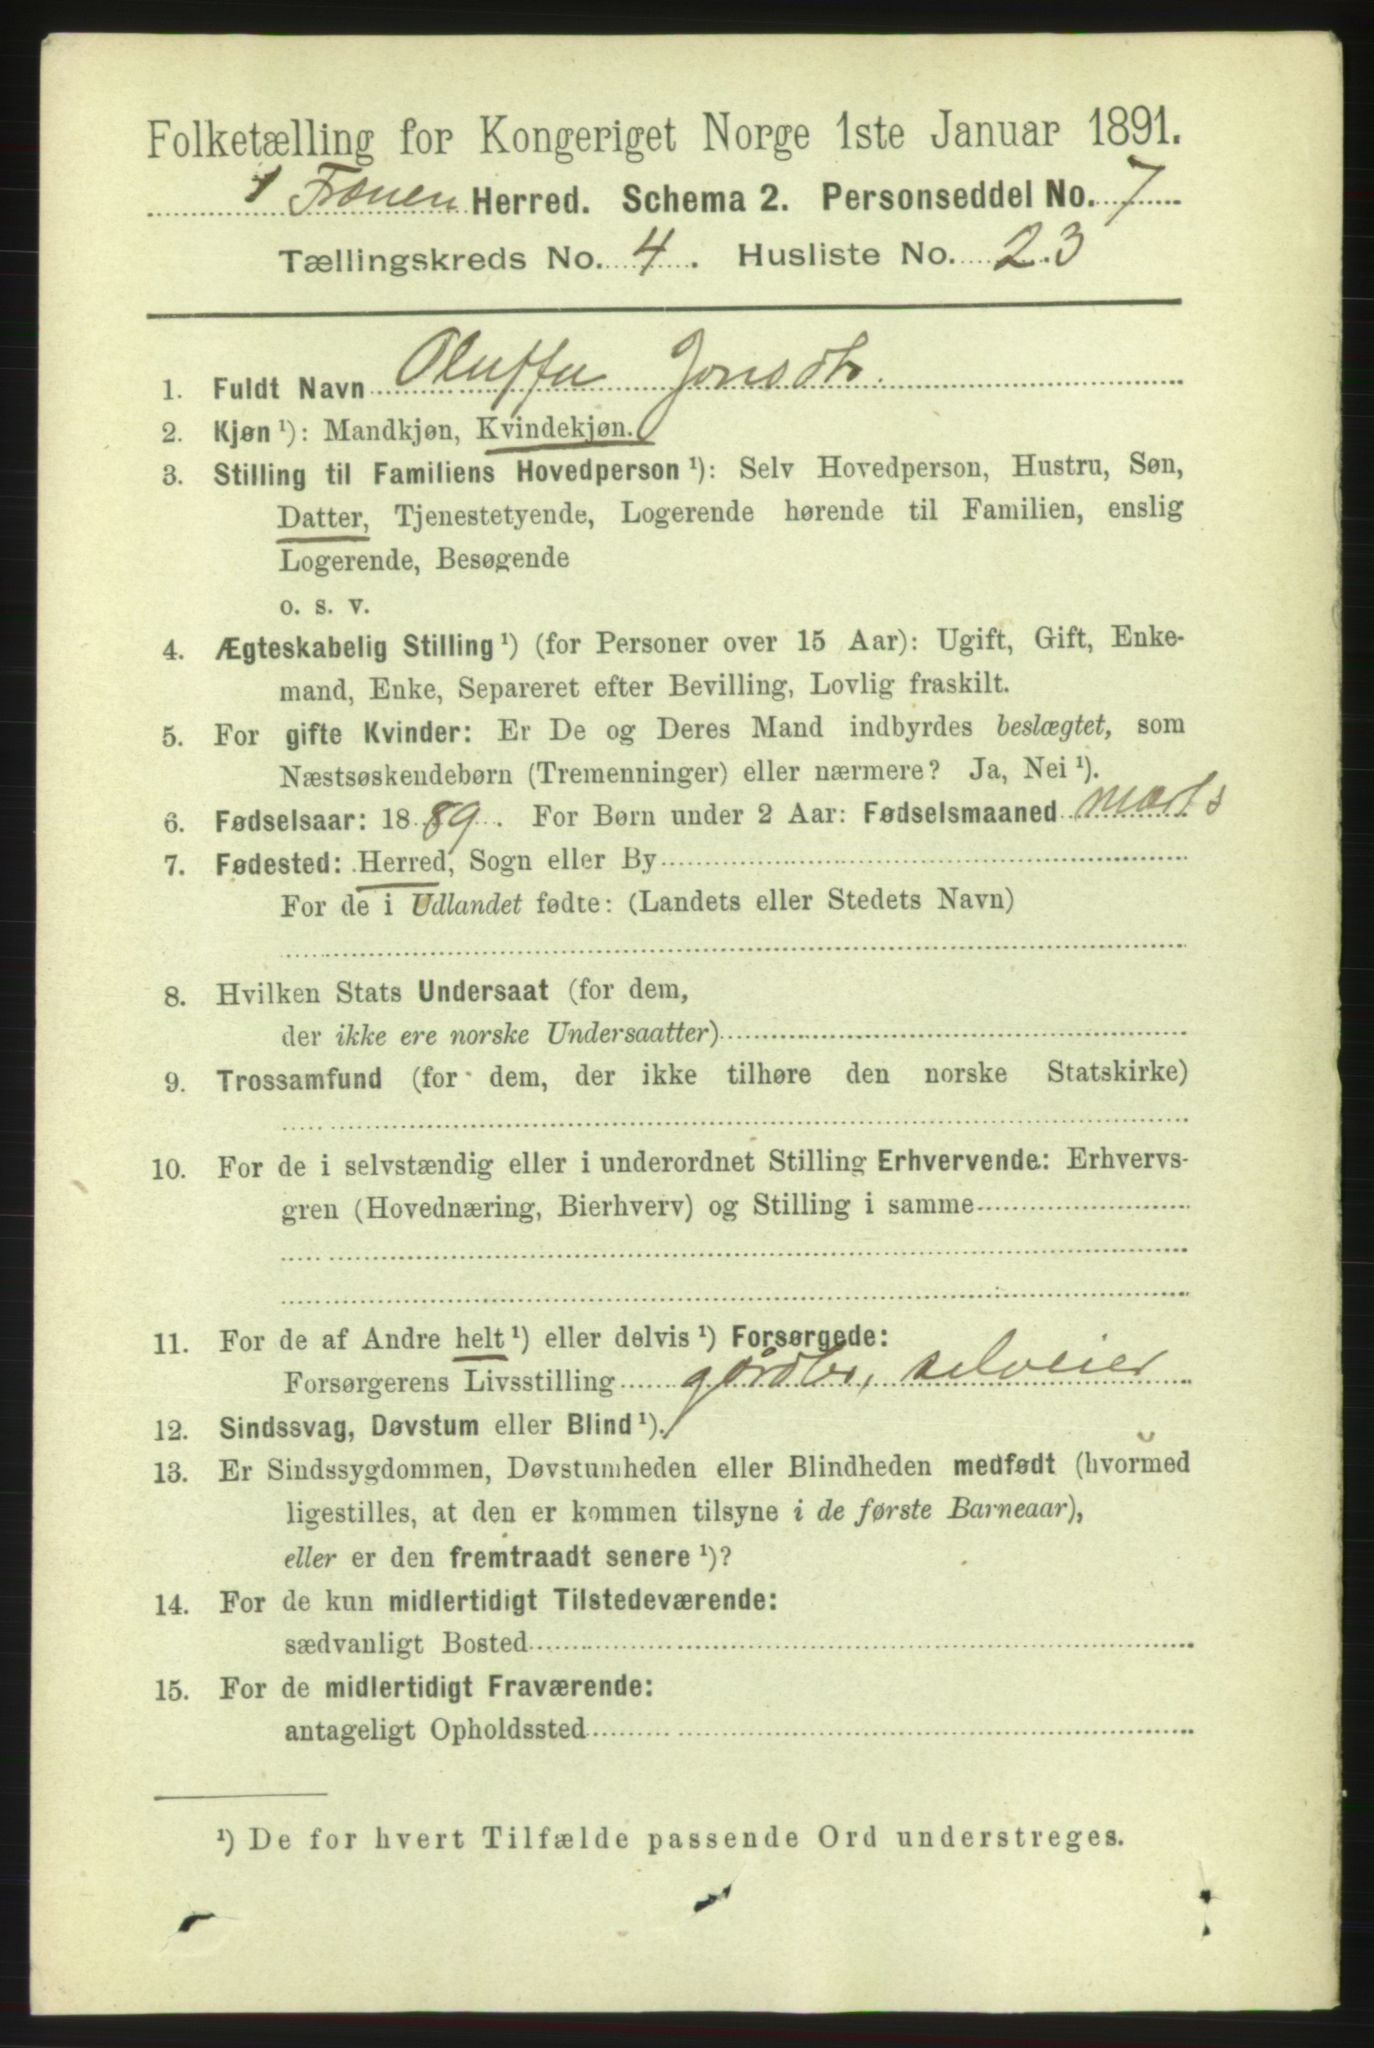 Folketælling for Kongeriget Norge 1ste Januar 1891.
Frænen Herred. Schema 2. Personseddel No. 7
Tællingskreds No. 4. Husliste No. 23
1. Fuldt Navn Oluffa Jonsdtr.
2. Kjøn ¹): Mandkjøn, Kvindekjøn.
3. Stilling til Familiens Hovedperson ¹): Selv Hovedperson, Hustru, Søn,
Datter, Tjenestetyende, Logerende hørende til Familien, enslig
Logerende, Besøgende
o. s. v.
4. Ægteskabelig Stilling ¹) (for Personer over 15 Aar): Ugift, Gift, Enke-
mand, Enke, Separeret efter Bevilling, Lovlig fraskilt.
5. For gifte Kvinder: Er De og Deres Mand indbyrdes beslægtet, som
Næstsøskendebørn (Tremenninger) eller nærmere? Ja, Nei ¹).
6. Fødselsaar: 1889. For Børn under 2 Aar: Fødselsmaaned Marts
7. Fødested: Herred, Sogn eller By
For de i Udlandet fødte: (Landets eller Stedets Navn)
8. Hvilken Stats Undersaat (for dem,
der ikke ere norske Undersaatter)
9. Trossamfund (for dem, der ikke tilhøre den norske Statskirke)
10. For de i selvstændig eller i underordnet Stilling Erhvervende: Erhvervs-
gren (Hovednæring, Bierhverv) og Stilling i samme
11. For de af Andre helt ¹) eller delvis ¹) Forsørgede:
Forsørgerens Livsstilling gårdbr, selveier
12. Sindssvag, Døvstum eller Blind ¹).
13. Er Sindssygdommen, Døvstumheden eller Blindheden medfødt (hvormed
ligestilles, at den er kommen tilsyne i de første Barneaar),
eller er den fremtraadt senere ¹)?
14. For de kun midlertidigt Tilstedeværende:
sædvanligt Bosted
15. For de midlertidigt Fraværende:
antageligt Opholdssted
¹) De for hvert Tilfælde passende Ord understreges.